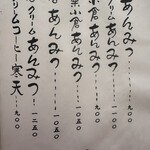 あんみつ
小倉あんみつ・・・九〇〇
栗小倉あんみつ・・・一〇五〇
クリームあんみつ・・・一〇五〇
クリームあんみつ・・・一二五〇
リムコーヒー寒天・・・九〇〇